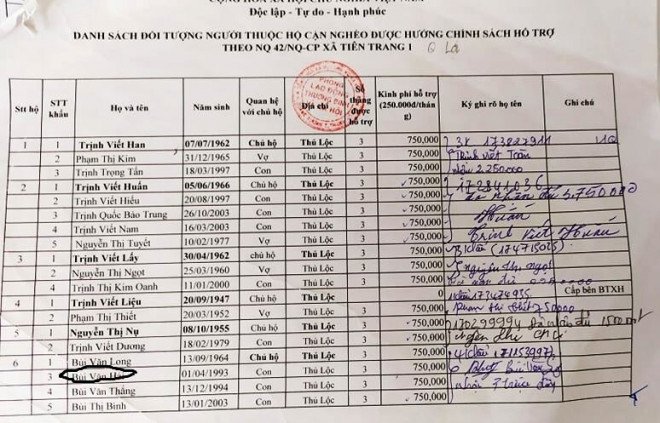 CỘNG HÒA XÃ HỘI CHỦ NGHĨA VIỆT NAM
Độc lập - Tự do - Hạnh phúc
DANH SÁCH ĐỐI TƯỢNG NGƯỜI THUỘC HỘ CẬN NGHÈO ĐƯỢC HƯỞNG CHÍNH SÁCH HỖ TRỢ
THEO NQ 42/NQ-CP XÃ TIÊN TRANG 1
Stt hộ STT khẩu Họ và tên Năm sinh Quan hệ với chủ hộ Địa chỉ Số tháng được hỗ trợ Kinh phí hỗ trợ (250.000đ/tháng) Ký ghi rõ họ tên Ghi chú
PHÒNG LAO ĐỘNG THƯƠNG BINH
1 1 Trịnh Viết Han 07/07/1962 Chủ hộ Thủ Lộc 3 750,000 3k 173827911
2 Phạm Thị Kim 31/12/1965 Vợ Thủ Lộc 3 750,000 Trịnh Viết
3 Trịnh Trọng Tấn 18/03/1997 Con Thủ Lộc 3 750,000 2.250000
2 1 Trịnh Viết Huấn 05/06/1966 Chủ hộ Thủ Lộc 3 750,000 172841036
2 Trịnh Viết Hiếu 20/08/1997 Con Thủ Lộc 3 750,000 đã nhận đủ 3.750000
3 Trịnh Quốc Bảo Trung 26/10/2003 Con Thủ Lộc 3 750,000 Huấn
4 Trịnh Viết Nam 16/03/2003 Con Thủ Lộc 3 750,000 Trịnh Viết Huấn
5 Nguyễn Thị Tuyết 10/02/1977 Vợ Thủ Lộc 3 750,000
3 1 Trịnh Viết Lấy 30/04/1962 chủ hộ Thủ Lộc 3 750,000
2 Nguyễn Thị Ngọt 25/03/1960 Vợ Thủ Lộc 3 750,000 Nguyễn Thị Ngọt
4 Trịnh Thị Kim Oanh 11/01/2000 Con Thủ Lộc 3 750,000
4 1 Trịnh Viết Liệu 20/09/1947 Chủ hộ Thủ Lộc 0 Cấp bên BTXH
2 Phạm Thị Thiết 20/03/1952 Vợ Thủ Lộc 3 750,000 Phạm Thị
5 1 Nguyễn Thị Nụ 08/10/1955 Chủ hộ Thủ Lộc 3 750,000 170299994 đã nhận đủ
2 Trịnh Viết Dương 18/02/1979 Con Thủ Lộc 3 750,000
6 1 Bùi Văn Long 13/09/1964 Chủ hộ Thủ Lộc 3 750,000
3 Bùi Văn 01/04/1993 Con Thủ Lộc 3 750,000
4 Bùi Văn Thắng 13/12/1994 Con Thủ Lộc 3 750,000
5 Bùi Thị Bình 13/01/2003 Con Thủ Lộc 3 750,000